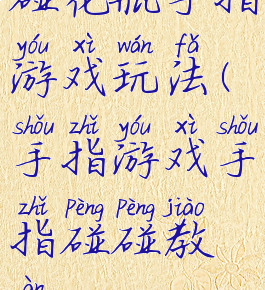 碰花瓶手指
yóu xì wán fǎ
游戏玩法(
shǒu zhǐ yóu xì shǒu
手指游戏手
zhǐ Pèng Pèng jiào
指碰碰教